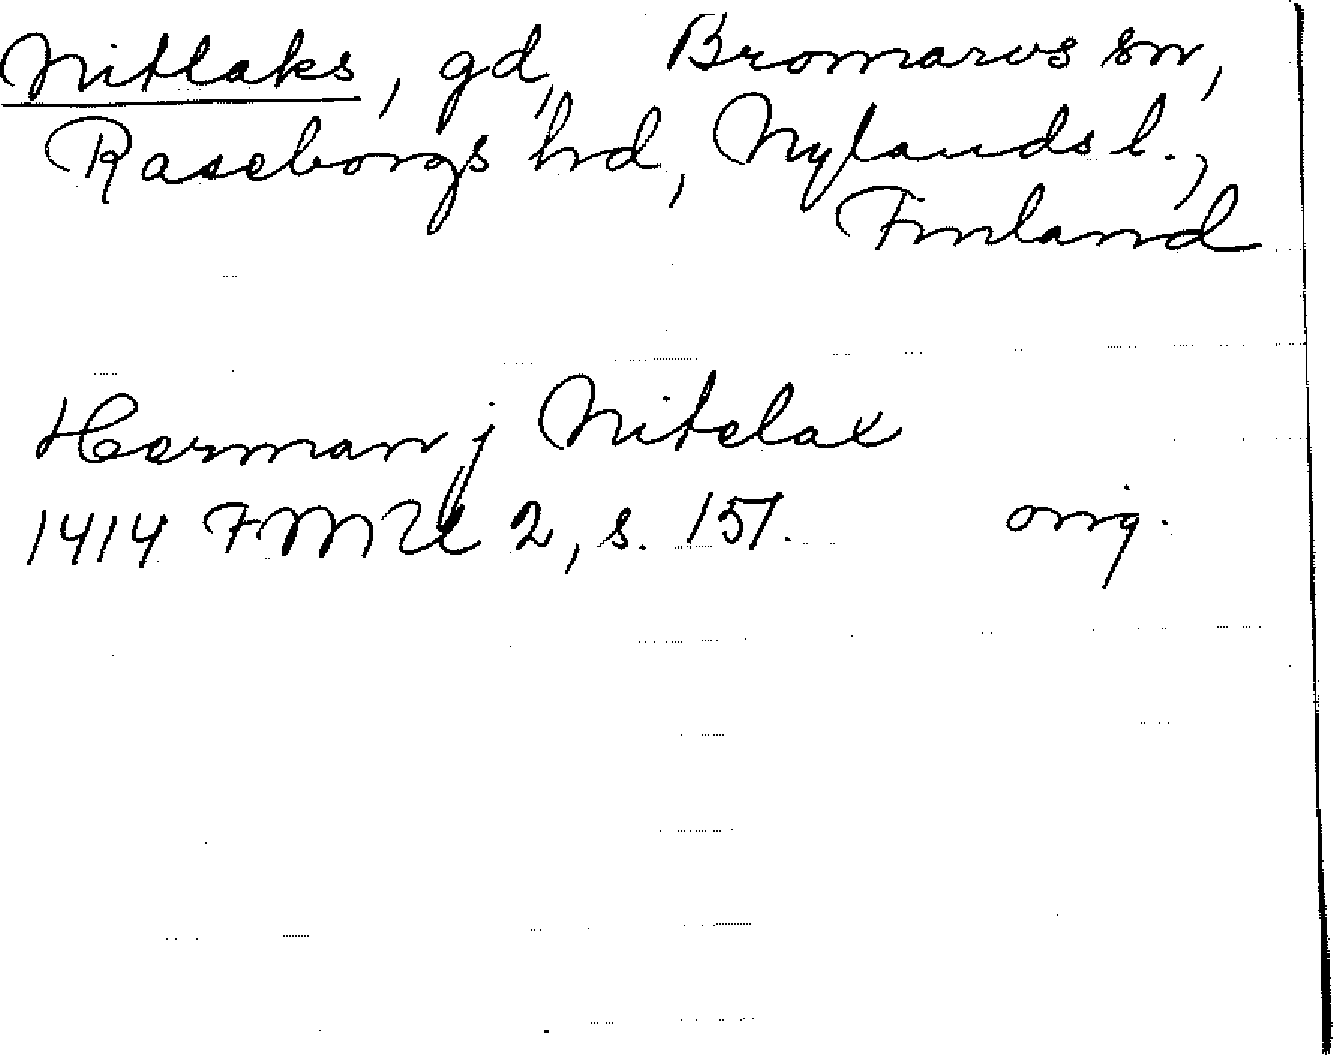 Nitlaks, gd, Bromarvs sn,
Raseborgs hrd, Nylands l.,
Finland
Herman j Nitelax
1414 FMU 2, s. 157. orig.